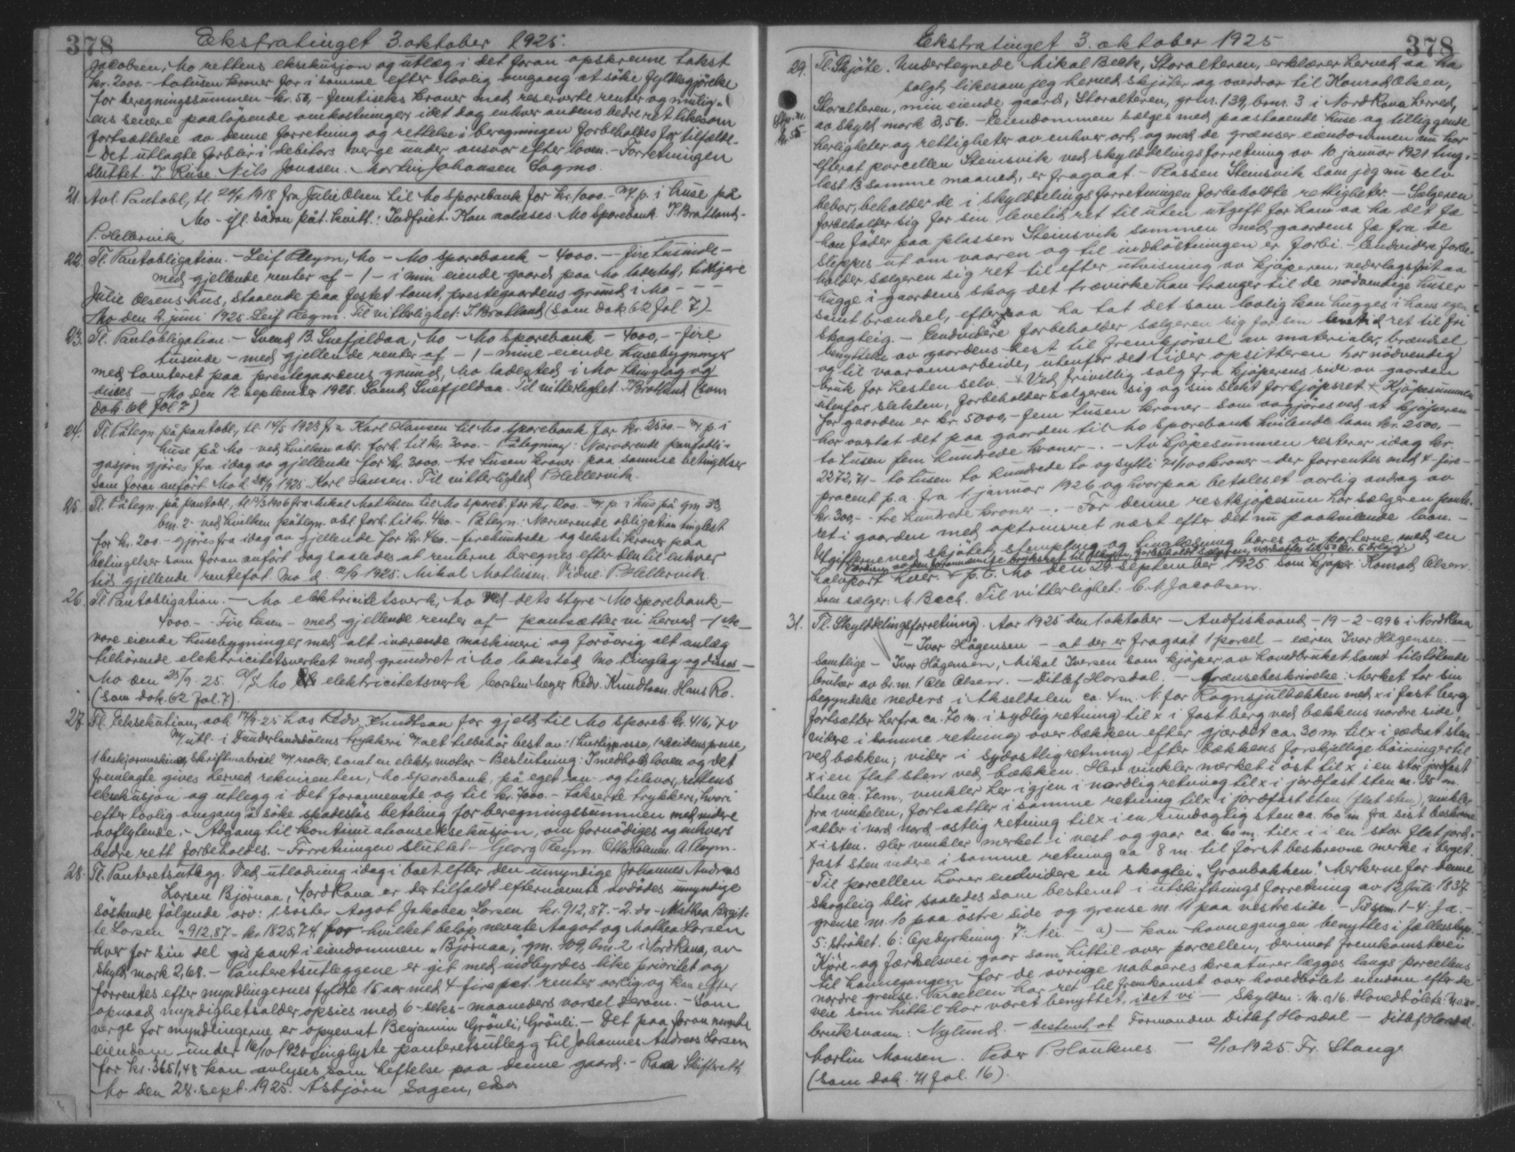 378 Ekstratinget 3. oktober 1925.
Jacobsen, Mo rettens eksekusjon og utlæg i det foran opskrevne takst
kr. 2000 - totusen kroner for i samme efter lovlig omgang at söke fyldestgjörelse
for beregningssummen kr. 56, - femtiseks kroner med reserverte renter og mulig-
ens senere paalöpende omkostninger idet dog enhver andens bedre ret likesom
fortsættelse av denne forretning og rettelse i beregningen forbeholdes for tilfælde.
- Det utlagte forblir i debitors verge under ansvar efter loven. - Forretningen
sluttet J. Ruse Nils Jonassen. Martin Johansen Tagmo.
21. Avl. Pantobl, tl. 1918 fra Julie Olsen til Mo Sparebank for kr. 1000 - m/ p. i huse på
Mo - ifl. sådan påt. kvitt.: Indfriet. Kan avlæses Mo Sparebank J. Bratland -
P. Hellervik
22. Tl. Pantobligation. - Leif Pleym, Mo - Mo Sparebank - 4000. - fire tusinde -
med gjellende renter af - 1 - i min eiende gaard paa Mo ladested, tidligere
Julie Olsens hus, staaende paa festet tomt, prestegaardens grund i Mo -
Mo den 2 juni 1925 Leif Pleym. Til vitterlighet: J. Bratland (som dok 62 fol 7)
23. Tl. Pantobligation. - Svend B. Snefjeldaa, Mo - Mo Sparebank - 4000, - fire
tusende - med gjellende renter af - 1 - mine eiende husebygninger
med tomteret paa prestegaardens grund, Mo ladested i Mo tinglag og
dises - Mo den 12 september 1925. Svend Snefjeldaa. Til vitterlighet J. Bratland (som
dok 62 fol 7)
24. Tl. Påtegn. på pantobl, tl. 1923 fra Karl Hansen til Mo Sparebank for kr. 2500 - m/ p. i
huse på Mo - ved hvilken obl. forh. til kr. 3000. - Påtegning: Nærværende pantobli-
gasjon gjöres fra idag av gjellende for kr. 3000. - tre tusen kroner paa samme betingelser
som foran anfört Mo d. 1925. Karl Hansen. Til vitterlighed P. Hellervik.
25. Tl. Påtegn. på pantobl, tl. 1906 fra Mikal Mathisen til Mo Spareb. for kr. 200. - m/ p. i hus på gm 33
bm. 2 - ved hvilken påtegn. obl. forh. til kr. 460. - Påtegn.: Nærværende obligation tinglest
for kr. 200 - gjöres fra idag av gjellende for kr. 460. - firehundrede og seksti kroner paa
betingelser som foran anfört dog saaledes at renterne beregnes efter den til enhver
tid gjellende rentefot Mo d. 1925. Mikal Mathisen. Vidne P. Hellervik.
26. Tl. Pantobligation. - Mo elektricitetsverk, Mo ved dets styre - Mo Sparebank -
4000. - Fire tusen - med gjellende renter af - pantsætter vi herved - 1 Mo
vore eiende husebygninger med alt inværende maskineri og forövrig alt anlæg
tilhörende elektricitetsverket med grundret i Mo ladested Mo tinglag og dises -
Mo den 23/9-25. Mo elektricitetsverk Carsten Meyer Fredr. Knudtsen. Hans Ro.
(som dok. 62 fol. 7)
27. Tl. Eksekution, avh 25 hos Fredr. Knudtsen for gjeld til Mo Spareb. kr. 416,
m/ utl. i Dunderlandsdölens trykkeri m/ alt tilbehör best av: 1 hurtigpresse, 1 accidenspresse,
1 beskjæremaskine, skriftmateriel m/ reoler, samt en elektr. motor - Beslutning: I medhold loven og det
fremlagte gives herved rekvirenten, Mo Sparebank, på eget an- og tilsvar, rettens
eksekusjon og utlegg i det forannevnte og til kr. 7000. - takserte trykkeri, hvori
efter lovlig omgang å söke skadeslös betaling for beregningssummen med videre
avflytende. - Adgang til kontinuationseksekusjon, om fornödiges og enhvers
bedre rett forbeholdes. - Forretningen sluttet - Georg Pleym Otto A. Pleym.
28. Tl. Panteretsutlegg. Ved utlodning idag i boet efter den umyndige Johannes Andreas
Larsen Bjørnaa, Nordrana er der tilfaldt efternævnte avdödes umyndige
söskende fölgende arv: 1. söster Aagot Jakobea Larsen kr. 912,87. - 2. do - Mathea Birgit-
te Larsen " 912,87 - kr. 1825,74, for hvilket belöp nevnte Aagot og Mathea Larsen
hver for sin del gis pant i eiendommen "Bjørnaa," gm. 109, bm. 2 i Nordrana, av
skyld mark 2,68. - Panteretsutleggene er git med indbyrdes like prioritet og
forrentes efter myndlingernes fyldte 15 aar med 4 - fire pct. renter aarlig og kan efter
opnaad myndighetsalder opsies med 6 - seks - maaneders varsel derom. - Som
verge for myndlingerne er opnevnt Benjamin Grönli, Grönli. - Det paa foran nevnte
eiendom under 16/10 1920 tinglyste panteretsutlegg til Johannes Andreas Larsen
for kr. 3651,48 kan avlyses som heftelse paa denne gaard. - Rana Skifteret
Mo den 28. sept. 1925. Asbjörn Sagen,
Ekstratinget 3. oktober 1925 378
29. Tl. Skjöte. Undertegnede Mikal Beck, Storalteren, erklærer herved aa ha
solgt, likesom jeg herved skjöter og overdrar til Konrad Olsen,
Storalteren, min eiende gaard, Storalteren, gr. nr. 139, br. nr. 3 i Nordrana herred,
av skyld mark 3,56. - Eiendommen sælges med paastaaende huse og tilliggende
herligheter og rettigheter av enhver art, og med de grænser eiendommen nu har
efterat parcellen Stensvik ved skylddelingsforretning av 10 januar 1921 ting-
læst 13 samme maaned, er fragaat - Plassen Stensvik som jeg nu selv
bebor, beholder de i skylddelingsforretningen forbeholdte rettigheter - Sælgeren
forbeholder sig for sin levetid ret til uten utgift for ham aa ha det fæ
han föder paa plassen Steinsvik sammen med gaardens fæ fra de
slippes ut om vaaren og til indhöstningen er forbi - Endvidere forbe-
holder sælgeren sig ret til efter utvisning av kjöperen, vederlagsfrit aa
hugge i gaardens skog det trævirke han trænger til de nödvendige huser
samt brændsel, efteraa ha tat det som lovlig kan hugges i hans egen
skogteig. - Endvidere forbeholder sælgeren sig for sin levetid ret til fri
benyttelse av gaardens hest til fremkjörsel av materialer, brændsel
og til vaaronnarbeide, utenfor det tider opsitteren har nödvendig
bruk for hesten selv. - x Ved frivillig salg fra kjöperens side av gaarden
utenfor slekten, forbeholder sælgeren sig og sin slekt forkjöpsret x Kjöpesummen
for gaarden er kr. 5000, - fem tusen kroner - som avgjöres ved at kjöperen
har overtat det paa gaarden til Mo Sparebank hvilende laan kr. 2500, -
to tusen fem hundrede kroner - . - Av kjöpesummen resterer idag kr.
2272,71 - to tusen to hundrede to og sytti 71/100 kroner - der forrentes med 4 - fire -
procent p. a. fra 1 januar 1926 og hvorpaa betales et aarlig avdrag av
kr. 300, - tre hundrede kroner - . - For denne restkjöpesum har sælgeren pante-
ret i gaarden med optrinsret næst efter det nu paahvilende laan. -
Utgifterne ved skjötets stempling og tinglesning bæres av parterne med en
halvpart hver. + p. t. Mo den 29 september 1925 som kjöper: Konrad Olsen.
Som sælger: M. Beck. Til vitterlighet: C. A. Jacobsen.
31. Tl. Skylddelingsforretning. Aar 1925 den 1 oktober - Andfiskvand - 19 - 2 - 0,96 i Nordrana
- Ivar Hågensen - at der er fragaat 1 parcel - eieren Ivar Hågensen. -
Samtlige - Ivar Hågensen, Mikal Iversen som kjöper av hovedbruket samt tilstötende
bruker av br. nr. 1 Ole Olsen. - Ditlef Horsdal. - Grænsebeskrivelse: Merket tar sin
begyndelse neders i Akseldalen ca. 4 m. N. for Rognsjulbækken med x i fast berg
fortsætter herfra ca. 70 m. i sydlig retning til x i fast berg ved bækkens nordre side,
videre i samme retning over bækken efter gjærdet ca. 30 m. til x i nedsat sten
ved bækken; vider i sydostlig retning efter bækkens forskjellige böininger til
x i en flat sten ved bækken. Her vinkler merket i öst til x i en stor jordfast
sten ca. 7 em, vinkler her igjen i nordlig retning til x i jordfast sten ca. 30 m.
fra vinkelen, fortsætter i samme retning til x i jordfast sten (flat sten), vinkler
atter i nord nord-ostlig retning til x i en rundagtig sten ca. 60 m. fra sist beskrevne
x i sten. Her vinkler merket i vest og gaar ca. 60 m. til x i en stor flat jord-
fast sten videre i samme retning ca 8 m til först beskrevne merke i berget.
Til parcellen hörer endvidere en skogteig "Granbakken." Merkerne for denne
skogteig blir saaledes som bestemt i utskiftningsforretning av 12 Juli 1837
grense nr. 10 paa östre side og grense nr. 11 paa vestre side - 1-4. Ja. -
5: ströket. 6: Opdyrkning. 7: Nei - a) - kan havnegangen benyttes i fællesskap.
Kjöre- og færdselsvei gaar som hittil over parcellen, derimot fremkomstvei
til havnegangen for de övrige naboeres kreaturer lægges langs parcellens
nordre grense. Parcellen har ret til fremkomst over hovedbölet eiendom efter de
veie som hittil har været benyttet, idet vi - Skylden: M. 0,16. Hovedbölets:
bruksnavn: Nylund. - bestemt at Formanden Ditlef Horsdal - Ditlef Horsdal.
Martin Monsen. Peder P. Hauknes - 2/10 1925. Fr. Stang.
(som dok. 71 fol. 16).